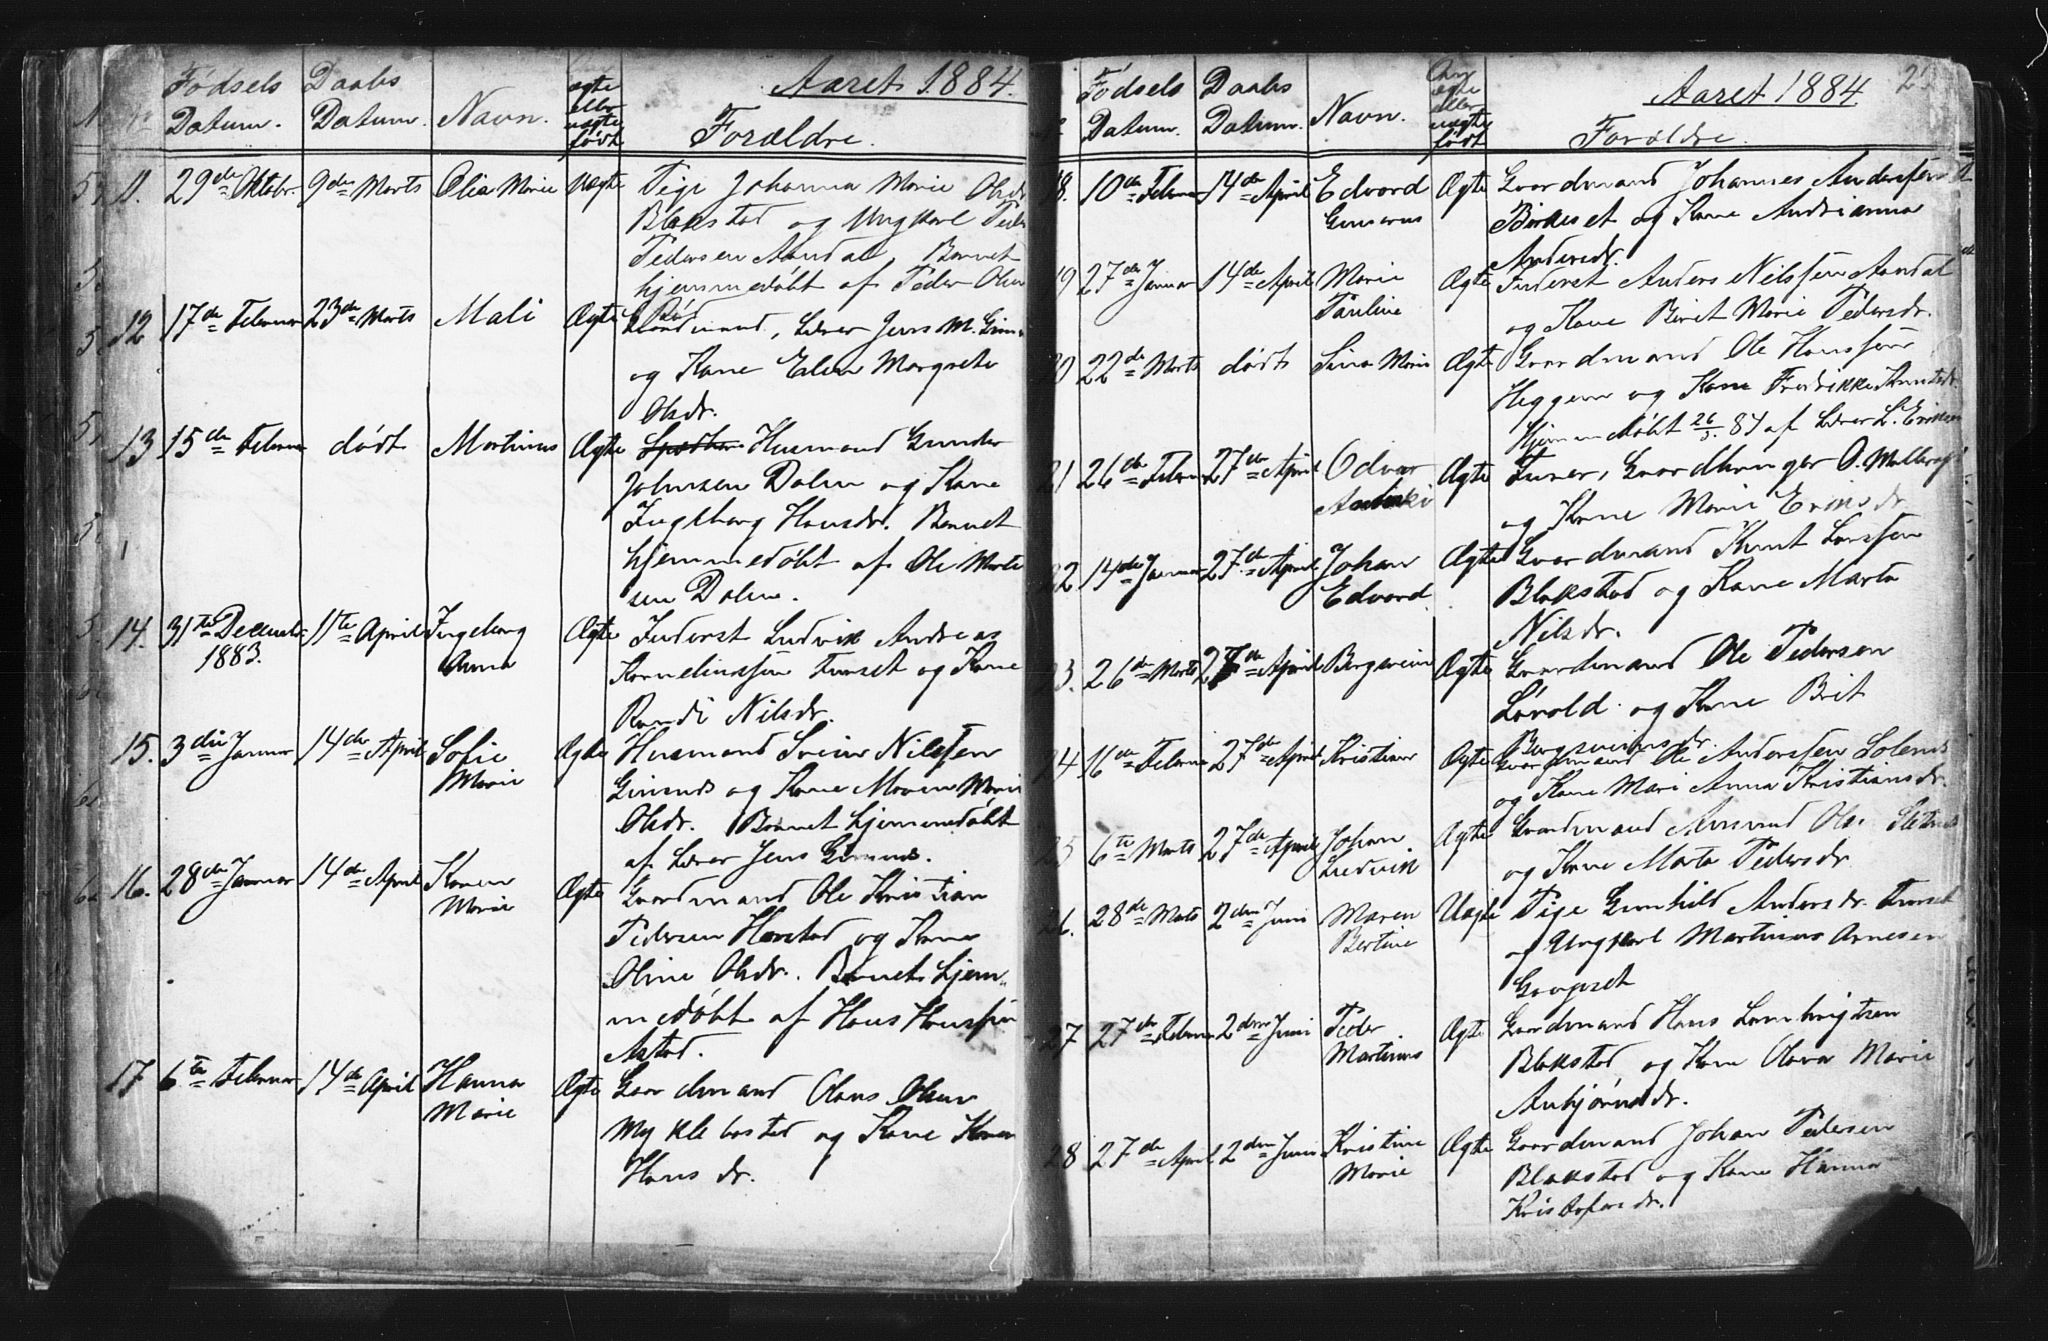 Aaret 1884.
Fødsels Datum. Daabs Datum. Navn. ægte eller uægte født Forældre.
11. 29de Oktobr. 9de Marts Olia Marie Uægte Pige Johanna Marie Olsdr
Blakstad og Ungkarl Peder
Pedersen Aandal, Barnet
hjemmedøbt af Peder Olsen
12 17de Februar 23de Marts Mali Ægte Gaardmand, Lærer Jens M.
og Kone Elen Margrete
Olsdr.
13 15de Februar dødt Martinus Ægte Husmand Gunder
Johnsen Dalen og Kone
Ingeborg Hansdr. Barnet
hjemmedøbt af Ole
sen Dalen.
14. 31te December 11te April Ingeborg Ægte Inderst Ludvik Andreas
1883. Anna Kornelinssen Furset og Kone
Randi Nilsdr.
15. 3die Januar 14de April Sofie Ægte Husmand Svein Nilssen
Marie og Kone Maren Marie
Olsdr. Barnet hjemmedøbt
af Lærer Jens
16. 28de Januar 14de April Karen Ægte Gaardmand Ole Kristian
Marie Pedersen Harstad og Kone
Oline Olsdr. Barnet hjem-
medøbt af Hans Hanssen
Astad.
17 6te Februar 14de April Hanna Ægte Gaardmand Olaus Olsen
Marie Myklebostad og Kone Karen
Hans dr.
Aaret 1884
Fødsels Datum. Daabs Datum. Navn. Om ægte eller uægte født Forældre.
18. 10de Februar 14de April Edvard Ægte Gaardmand Johannes Anderssen
Gunerius Birkeset og Kone Andrianna
Andersdr.
19 27de Januar 14de April Marie Ægte Inderst Anders Nilssen Aandal
Pauline og Kone Berit Marie Pedersdr.
20 22de Marts dødt Sina Marie Ægte Gaardmand Ole Hanssen
Heggem og Kone Fredrikke Knutsdr.
Hjemmedøbt 26/3. 84 af Lærer L. Eriksen
21 26de Februar 27de April Odvar Ægte Furer, Gaardbruger O.
og Kone Marie Eriksdr
22 14de Januar 27de April Johan Ægte Gaardmand Knut Larssen
Edvard. Blakstad og Kone Marta
Nilsdr.
23. 26de Marts 27de April Bergsvein Ægte Gaardmand Ole Pedersen
Løvold og Kone Brit
Bergsveinsdr.
24 16de Februar 27de April Kristian Ægte Gaardmand Ole Anderssen Solends
og Kone Mari Anna Kristiansdr.
25 6te Marts 27de April Johan Ægte Gaardmand Amund Ols.
Ludvik og Kone Marta Pedersdr.
26. 28de Marts 2den Juni Maren Uægte Pige Gunhild Andersdr. Furset
Bertine og Ungkarl Martinus Arnesen
Gaupset
27 27de Februar 2den Juni Peder Ægte Gaardmand Hans Lambrigtsen
Martinus Blakstad og Kone Olava Marie
Anbjørnsdr.
28 27de April 2den Juni Kristine Ægte Gaardmand Johan Pedersen
Marie Blakstad og Kone Hanna
Kristofersdr.